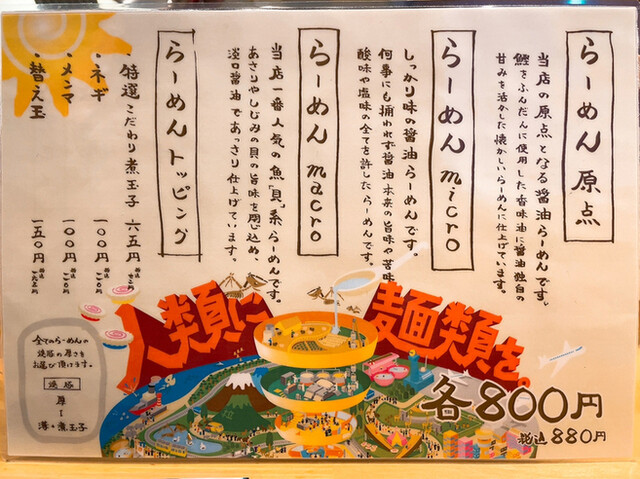 らーめん 原点
当店の原点となる醤油らーめんです。
鰹をふんだんに使用した香味油に醤油独自の
甘みを活かした懐かしいらーめんに仕上げています。
らーめん micro
しっかり味の醤油らーめんです。
何事にも捕われず醤油本来の旨味や苦味
酸味や塩味の全てを許したらーめんです。
らーめん macro
当店一番人気の魚「貝」系らーめんです。
あさりやしじみの貝の旨味を閉じ込め、
淡口醤油であっさり仕上げています。
らーめんトッピング
・特選こだわり煮玉子 六五円
・ネギ 一〇〇円
・メンマ 一〇〇円
・替え玉 一五〇円
全てのらーめんの
焼豚の厚さを
お選び頂けます。
焼豚
厚
薄+煮玉子
人類に
麺類を。
各800円
税込880円